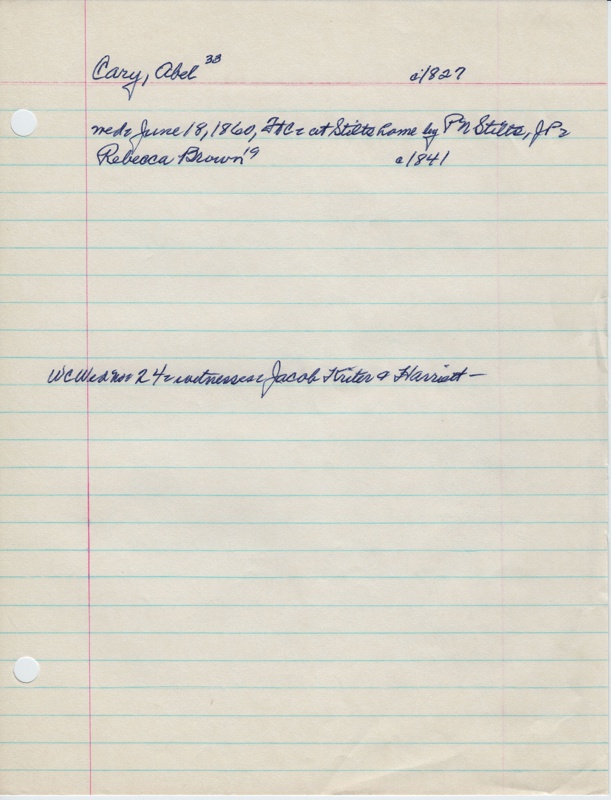 Cary, Abel 33 c1827
med: June 18, 1860, at Stilts home by P N Stilts, JP:
Rebecca Brown 19 c1841
WC Wed no: 24: witnesses: Jacob Kriter & Harriett —